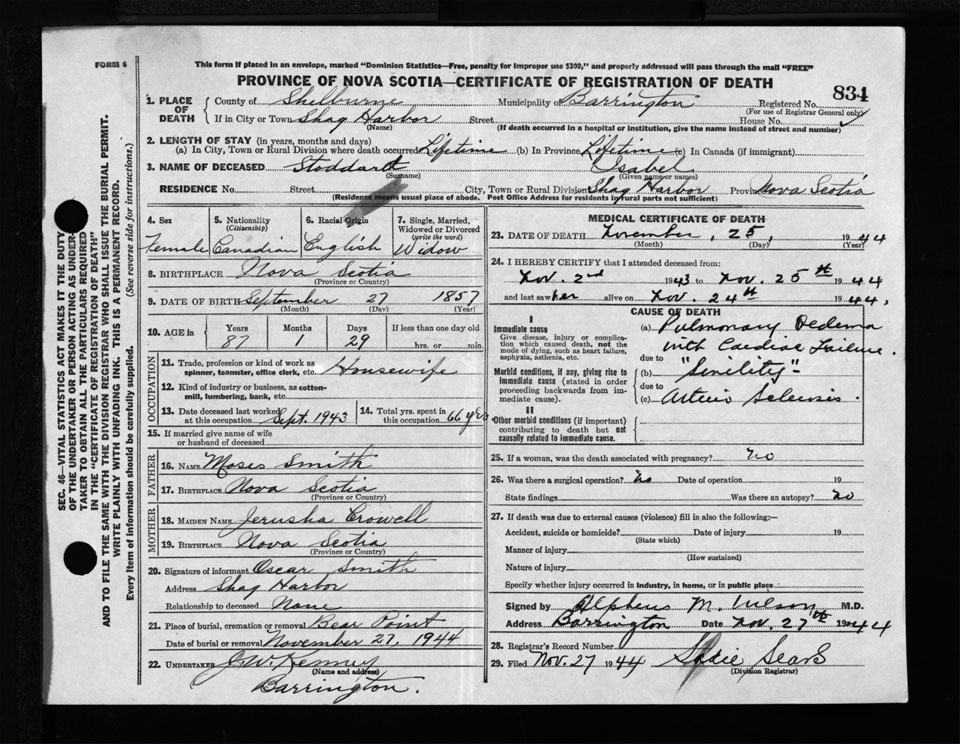 FORM 6
This form if placed in an envelope, marked "Dominion Statistics—Free, penalty for improper use $300," and properly addressed will pass through the mail "FREE"
PROVINCE OF NOVA SCOTIA—CERTIFICATE OF REGISTRATION OF DEATH
834
1. PLACE OF DEATH
County of Shelburne Municipality of Barrington Registered No.
(For use of Registrar General only)
If in City or Town Shag Harbor Street House No.
(Name) (If death occurred in a hospital or institution, give the name instead of street and number)
2. LENGTH OF STAY (in years, months and days)
(a) In City, Town or Rural Division where death occurred Lifetime (b) In Province Lifetime (c) In Canada (if immigrant)
3. NAME OF DECEASED Stoddard Isabel
(Surname) (Given name or names)
RESIDENCE No. Street City, Town or Rural Division Shag Harbor Province Nova Scotia
(Residence means usual place of abode. Post Office Address for residents in rural parts not sufficient)
4. Sex Female
5. Nationality (Citizenship) Canadian
6. Racial Origin English
7. Single, Married, Widowed or Divorced (write the word) Widow
8. BIRTHPLACE Nova Scotia
(Province or Country)
9. DATE OF BIRTH September 27 1857
(Month) (Day) (Year)
10. AGE in Years Months Days If less than one day old
87 1 29 hrs. or min.
OCCUPATION
11. Trade, profession or kind of work as spinner, teamster, office clerk, etc. Housewife
12. Kind of industry or business, as cotton-mill, lumbering, bank, etc.
13. Date deceased last worked at this occupation Sept. 1943
14. Total yrs. spent in this occupation 66 yrs
15. If married give name of wife or husband of deceased
FATHER
16. NAME Moses Smith
17. BIRTHPLACE Nova Scotia
(Province or Country)
MOTHER
18. MAIDEN NAME Jerusha Crowell
19. BIRTHPLACE Nova Scotia
(Province or Country)
20. Signature of informant Oscar Smith
Address Shag Harbor
Relationship to deceased None
21. Place of burial, cremation or removal Bear Point
Date of burial or removal November 27, 1944
22. UNDERTAKER J. W. Kenney
(Name and address)
Barrington.
MEDICAL CERTIFICATE OF DEATH
23. DATE OF DEATH November, 25, 1944
(Month) (Day) (Year)
24. I HEREBY CERTIFY that I attended deceased from:
Nov. 2nd 1943 to Nov. 25th 1944
and last saw her alive on Nov. 24th 1944,
CAUSE OF DEATH
I
Immediate cause
Give disease, injury or complication which caused death, not the mode of dying, such as heart failure, asphyxia, asthenia, etc.
(a) Pulmonary Oedema with Cardiac Failure.
due to
Morbid conditions, if any, giving rise to immediate cause (stated in order proceeding backwards from immediate cause).
(b) "Senility"-
due to
(c) Arterio Sclerosis.
II
Other morbid conditions (if important) contributing to death but not causally related to immediate cause.
25. If a woman, was the death associated with pregnancy? No
26. Was there a surgical operation? No Date of operation 19
State findings Was there an autopsy? No
27. If death was due to external causes (violence) fill in also the following:—
Accident, suicide or homicide? Date of injury 19
(State which)
Manner of injury
(How sustained)
Nature of injury
Specify whether injury occurred in industry, in home, or in public place
Signed by Alpheus M. Wilson M.D.
Address Barrington Date Nov. 27th 1944
28. Registrar's Record Number
29. Filed Nov. 27 1944 Sadie Sears
(Division Registrar)
SEC. 46—VITAL STATISTICS ACT MAKES IT THE DUTY
OF THE UNDERTAKER OR PERSON ACTING AS UNDER-
TAKER TO OBTAIN ALL THE PARTICULARS REQUIRED
IN THE "CERTIFICATE OF REGISTRATION OF DEATH"
AND TO FILE THE SAME WITH THE DIVISION REGISTRAR WHO SHALL ISSUE THE BURIAL PERMIT.
WRITE PLAINLY WITH UNFADING INK. THIS IS A PERMANENT RECORD.
Every item of information should be carefully supplied. (See reverse side for instructions.)